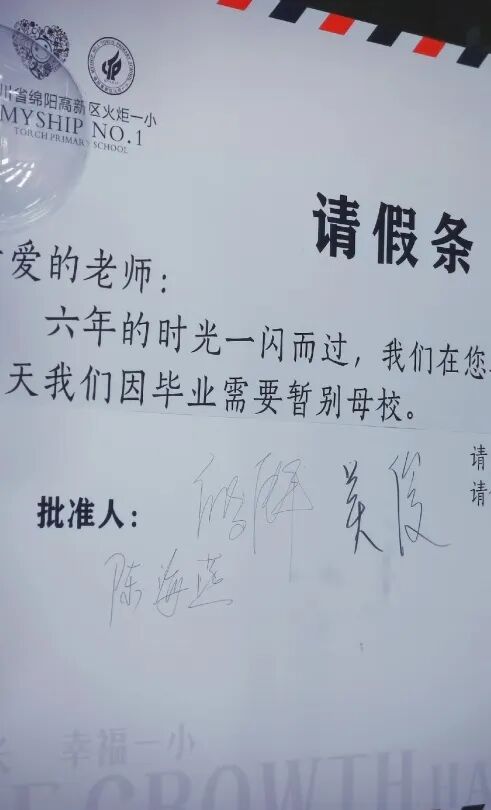 川省绵阳高新区火炬一小
MYSHIP NO.1
TORCH PRIMARY SCHOOL
请假条
爱的老师：
六年的时光一闪而过，我们在您
天我们因毕业需要暂别母校。
请
请
批准人：
陈海燕
幸福一小
GROWTH HA